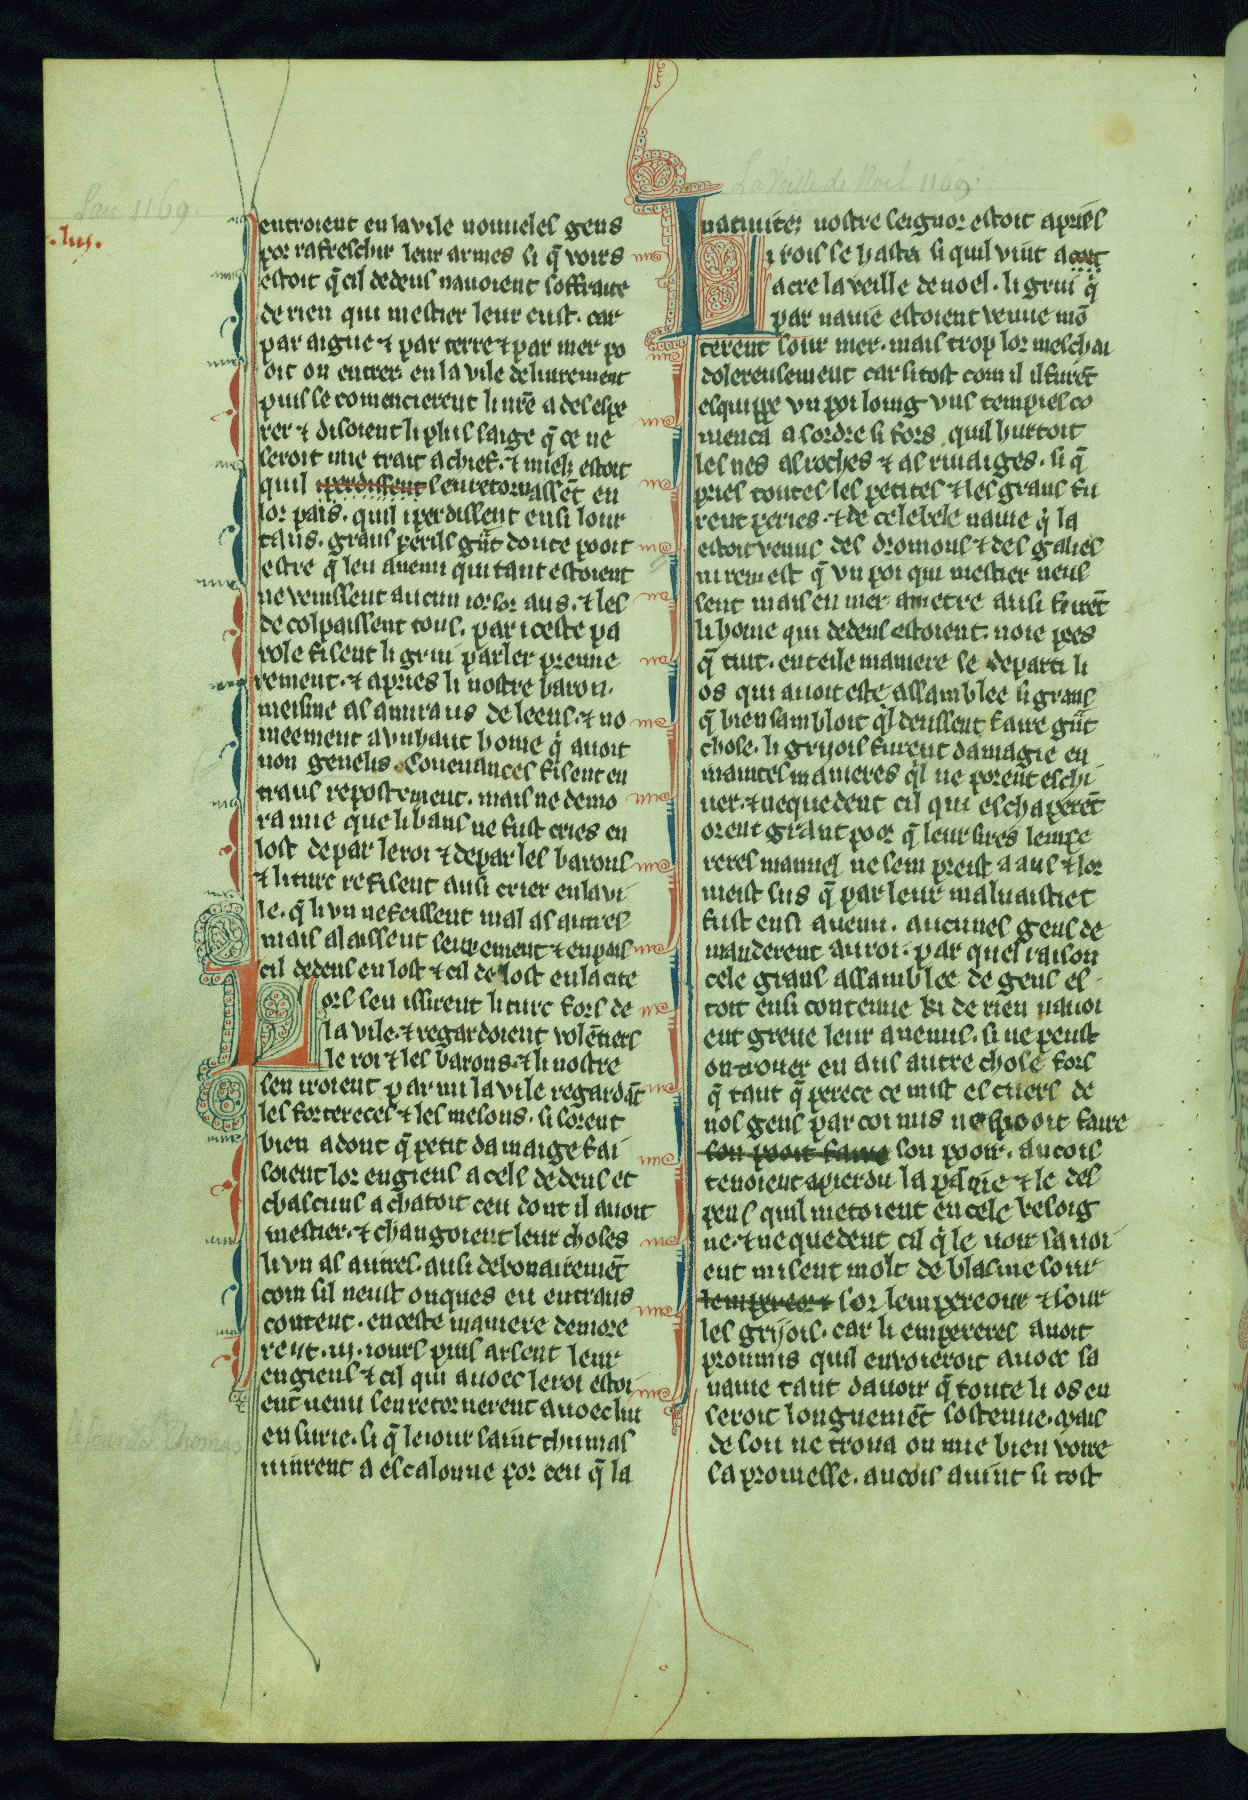 Lan 1169
.lus.
entroient en la vile nouueles gens
por rafreschir leur armes si q̃ voirs
estoit q̃ cil dedens nauoient soffraite
de rien qui mestier leur eust. car
par aigue ⁊ par terre ⁊ par mer po
oit on entrer en la vile deliurement
puis se comencierent li nr̃e a desespe
rer ⁊ disoient li plus saige q̃ ce ne
seroit mie trait a chief. ⁊ mielz estoit
quil iperdissent sen retornassẽt en
lor païs. quil iperdissent ensi lour
tans. grans perils gñt doute pooit
estre q̃ leu auenu qui tant estoient
ne venissent aucun ior sor aus. ⁊ les
decolpaissent tous. par iceste pa
role fisent li griu parler premie
rement. ⁊ apries li nostre baron.
meisme as amiraus de leens. ⁊ no
meement a vn haut home q̃ auoit
non geuelis. Couenances fisent en
traus repostement. mais ne demo
ra mie que li bans ne fust cries en
lost de par le roi ⁊ de par les barons
⁊ li turc refisent ausi crier en la vi
le. q̃ li vn ne feissent mal as autres
mais alaissent seurement ⁊ en pais
cil dedens en lost ⁊ cil de lost en la cite
Lors sen issirent li turc fors de
la vile. ⁊ regardoient volẽtiers
le roi ⁊ les barons. ⁊ li nostre
sen iroient par mi la vile regardãt
les fortereces ⁊ les mesons. si sorent
bien adont q̃ petit damaige fai
soient lor engiens a cels dedens et
chascuns achatoit ceu dont il auoit
mestier. ⁊ changoient leur choses
li vn as autres. ausi debonairemẽt
com sil neust onques eu entraus
content. en ceste maniere demore
rent .iij. iours puis arsent leur
engiens ⁊ cil qui auoec le roi estoi
ent uenu sen retornerent auoec lui
en surie. si q̃ le iour saint thumas
uinrent a escalonne por ceu q̃ la
le jour de St Thomas
La Veille de Noel 1169.
natiuitez nostre seignor estoit apries
Li rois se hasta si quil vint a cort
acre la veille de noel. li griu q̃
par nauie estoient venue mõ
terent sour mer. mais trop lor meschai
dolereusement car si tost com il il furẽt
esquippe vn poi loing vns tempies co
menca a sordre si fors quil hurtoit
les nes as roches ⁊ as riuaiges. si q̃
pries toutes les petites ⁊ les grans fu
rent peries. ⁊ de cele bele nauie q̃ la
estoit venus des dromons ⁊ des galies
ni remest q̃ vn poi qui mestier neus
sent mais en mer ametre ausi furẽt
li home qui dedens estoient. noie pres
q̃ tuit. en teile maniere se departi li
os qui auoit este assamblee si grans
q̃ bien sambloit q̃l deussent faire gñt
chose. li grijois furent damagie en
maintes manieres q̃l ne porent eschi
uer. ⁊ nequedent cil qui eschaperẽt
orent grant poor q̃ leur sires lempe
reres manuel ne sem preist a aus ⁊ lor
meist sus q̃ par leur maluaistiet
fust ensi auenu. aucunes gens de
manderent au roi. par quel raison
cele grans assamblee de gens es
toit ensi contenue ki de rien nauoi
ent greue leur anemis. si ne peust
on trouer en aus autre chose fors
q̃ tant q̃ perece ce mist es cuers de
nos gens par coi nus ne pooit faire
son pooit faire son pooir. ancois
tenoient apierdu la painne ⁊ le des
pens quil metoient en cele besoig
ne. ⁊ nequedent cil q̃ le uoir sauoi
ent misent molt de blasme sour
lempereor ⁊ sor lempereour ⁊ sour
les grijois. car li empereres auoit
proumis quil enuoieroit auoec sa
nauie tant dauoir q̃ toute li os en
seroit longuemẽt sostenue. mais
de son ne troua on mie bien voire
sa promesse. ancois auint si tost